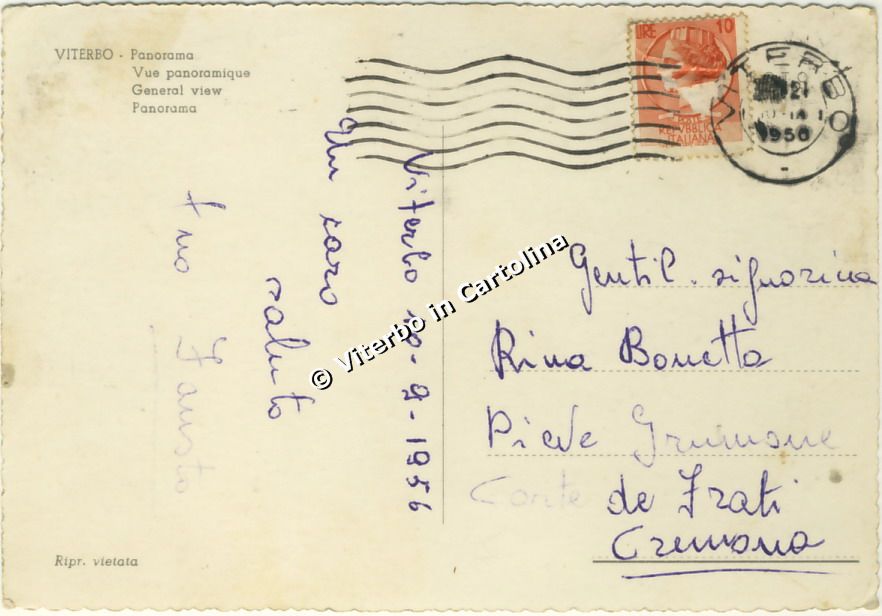 VITERBO - Panorama
Vue panoramique
General view
Panorama
LIRE 10
POSTE
REPVBBLICA
ITALIANA
VITERBO
21
1956
Viterbo 20-9-1956
Un caro
saluto
tuo Fausto
© Viterbo in Cartolina
Gentil. signorina
Rina Bonetta
Pieve Grumone
Corte de Frati
Cremona
Ripr. vietata